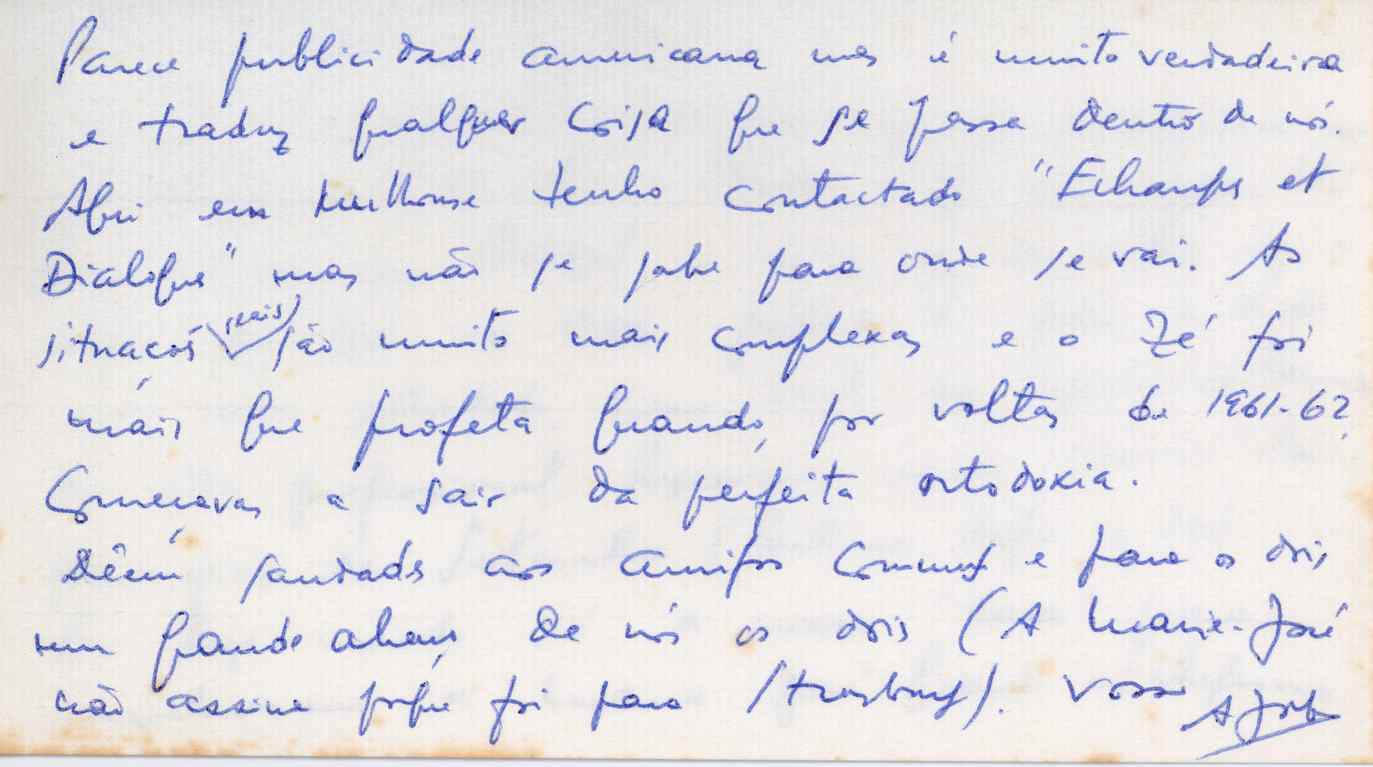 Parece publicidade americana mas é muito verdadeira
e traduz qualquer coisa que se passa dentro de nós.
Aqui em Mulhouse tenho contactado "Echanges et
Dialogue" mas não se sabe para onde se vai. As
situações reais são muito mais complexas e o Zé foi
mais que profeta quando, por voltas de 1961-62,
começavas a sair da perfeita ortodoxia.
Dêem saudades aos amigos comuns e para os dois
um grande abraço de nós os dois (A Marie-José
não assina porque foi para Strasbourg). Vosso